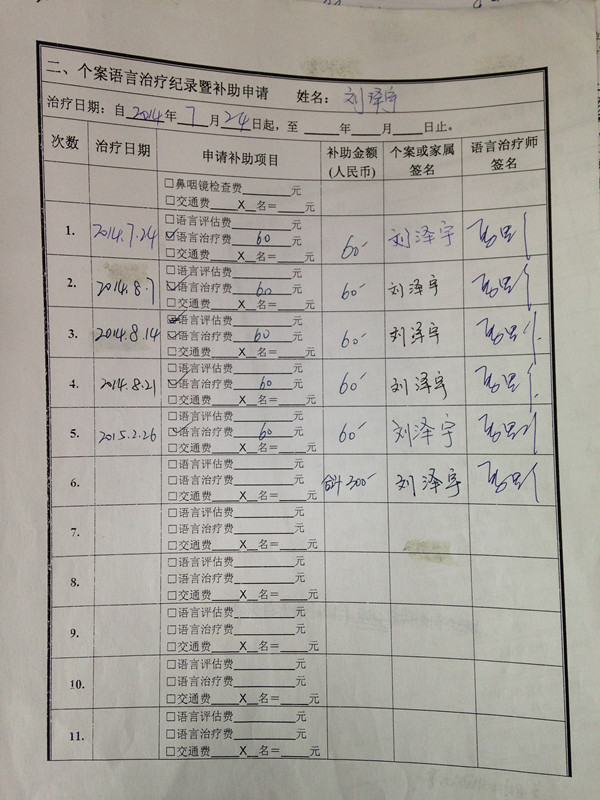 二、个案语言治疗纪录暨补助申请 姓名：刘泽宇
治疗日期：自2014年7月24日起，至____年____月____日止。
次数 治疗日期 申请补助项目 补助金额(人民币) 个案或家属签名 语言治疗师签名
□鼻咽镜检查费______元
□交通费____X__名=____元
1. 2014.7.24 □语言评估费______元
☑语言治疗费 60 元 60- 刘泽宇
□交通费____X__名=____元
2. 2014.8.7 □语言评估费______元
☑语言治疗费 60 元 60- 刘泽宇
□交通费____X__名=____元
3. 2014.8.14 ☑语言评估费______元
☑语言治疗费 60 元 60- 刘泽宇
□交通费____X__名=____元
4. 2014.8.21 □语言评估费______元
☑语言治疗费 60 元 60- 刘泽宇
□交通费____X__名=____元
5. 2015.2.26 □语言评估费______元
☑语言治疗费 60 元 60- 刘泽宇
□交通费____X__名=____元
6. □语言评估费______元
□语言治疗费______元 合计300- 刘泽宇
□交通费____X__名=____元
7. □语言评估费______元
□语言治疗费______元
□交通费____X__名=____元
8. □语言评估费______元
□语言治疗费______元
□交通费____X__名=____元
9. □语言评估费______元
□语言治疗费______元
□交通费____X__名=____元
10. □语言评估费______元
□语言治疗费______元
□交通费____X__名=____元
11. □语言评估费______元
□语言治疗费______元
□交通费____X__名=____元